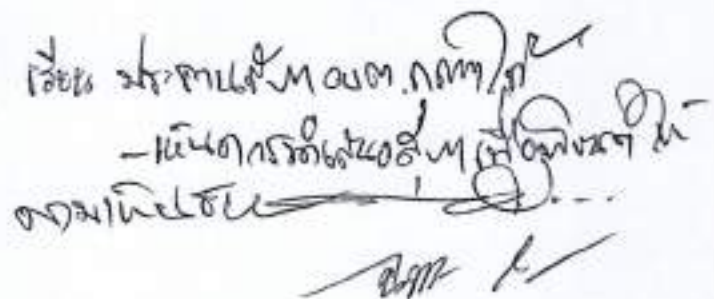 เรียน ประธานสภา อบต.
-เห็นควรนำเสนอสภาเพื่อพิจารณาให้
ความเห็นชอบ